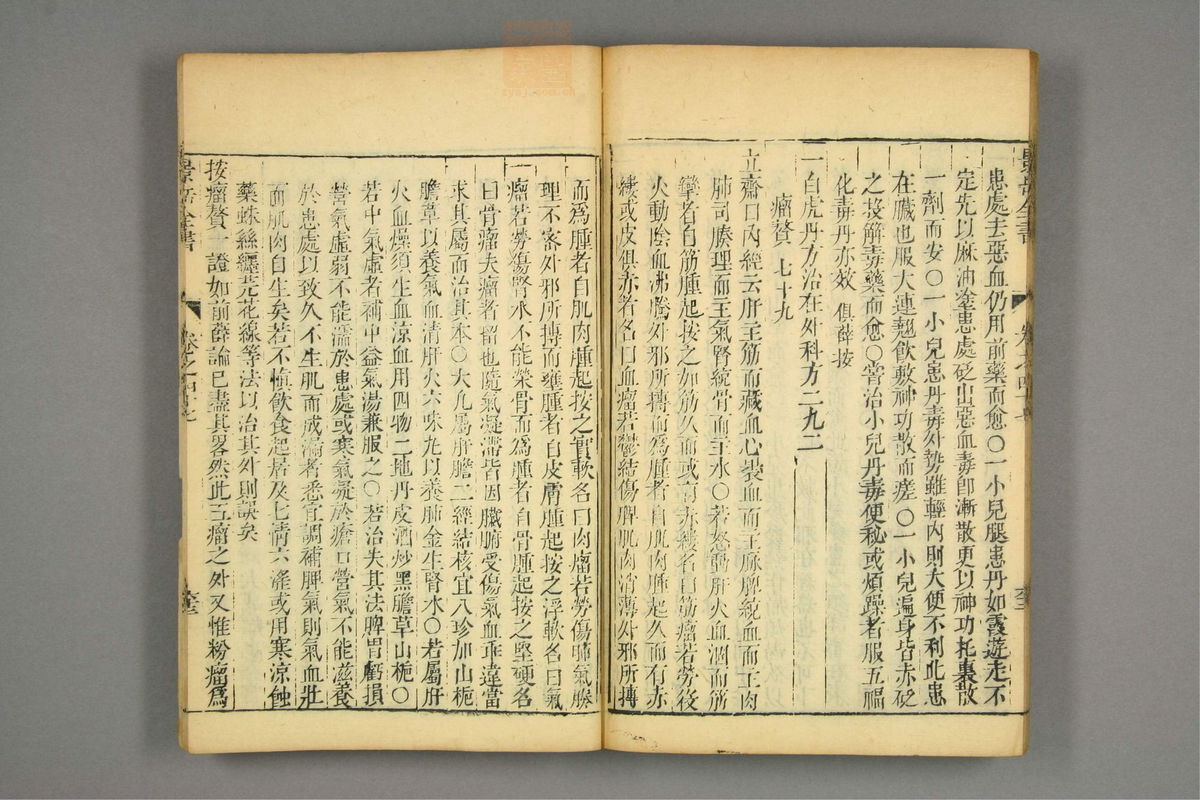 患處去惡血仍用前藥而愈〇一小兒腿患丹如霞遊走不
定先以麻油塗患處砭出惡血毒卽漸散更以神功托裏散
一劑而安〇一小兒患丹毒外勢雖輕內則大便不利此患
在臟也服大連翹飲敷神功散而瘥〇一小兒遍身皆赤砭
之投解毒藥而愈〇嘗治小兒丹毒便秘或煩躁者服五福
化毒丹亦效 俱薛按
一白虎丹方治在外科方二九二
瘤贅 七十九
立齋曰內經云肝主筋而藏血心裴血而主脉脾統血而主肉
肺司腠理而主氣腎統骨而主水〇若怒動肝火血涸而筋
攣者自筋腫起按之如筋久而或有赤縷名曰筋瘤若勞役
火動陰血沸騰外邪所搏而爲腫者自肌肉腫起久而有赤
縷或皮俱赤者名曰血瘤若鬱結傷脾肌肉消薄外邪所搏
而爲腫者自肌肉腫起按之實軟名曰肉瘤若勞傷肺氣腠
理不密外邪所搏而壅腫者自皮膚腫起按之浮軟名曰氣
瘤若勞傷腎水不能榮骨而爲腫者自骨腫起按之堅硬名
曰骨瘤夫瘤者留也隨氣凝滯皆因臟腑受傷氣血乖違當
求其屬而治其本〇大凡屬肝膽二經結核宜八珍加山梔
膽草以養氣血清肝火六味丸以養肺金生腎水〇若屬肝
火血燥須生血涼血用四物二地丹皮酒炒黑膽草山梔〇
若中氣虛者補中益氣湯兼服之〇若治失其法脾胃虧損
營氣虛弱不能濡於患處或寒氣凝於瘡口營氣不能滋養
於患處以致久不生肌而成漏者悉宜調補脾氣則氣血壯
而肌肉自生矣若不愼飲食起居及七情六淫或用寒涼蝕
藥蛛絲纏芫花線等法以治其外則誤矣
按瘤贅一證如前薛論已盡其畧然此五瘤之外又惟粉瘤爲
景岳全書
卷之四十七